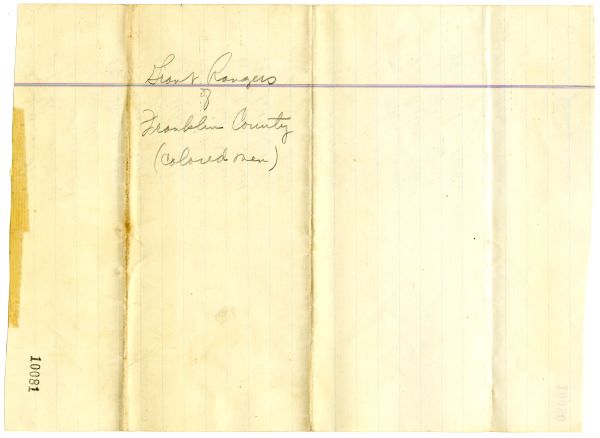 Grant Rangers
of
Franklin County
(colored men)
10081